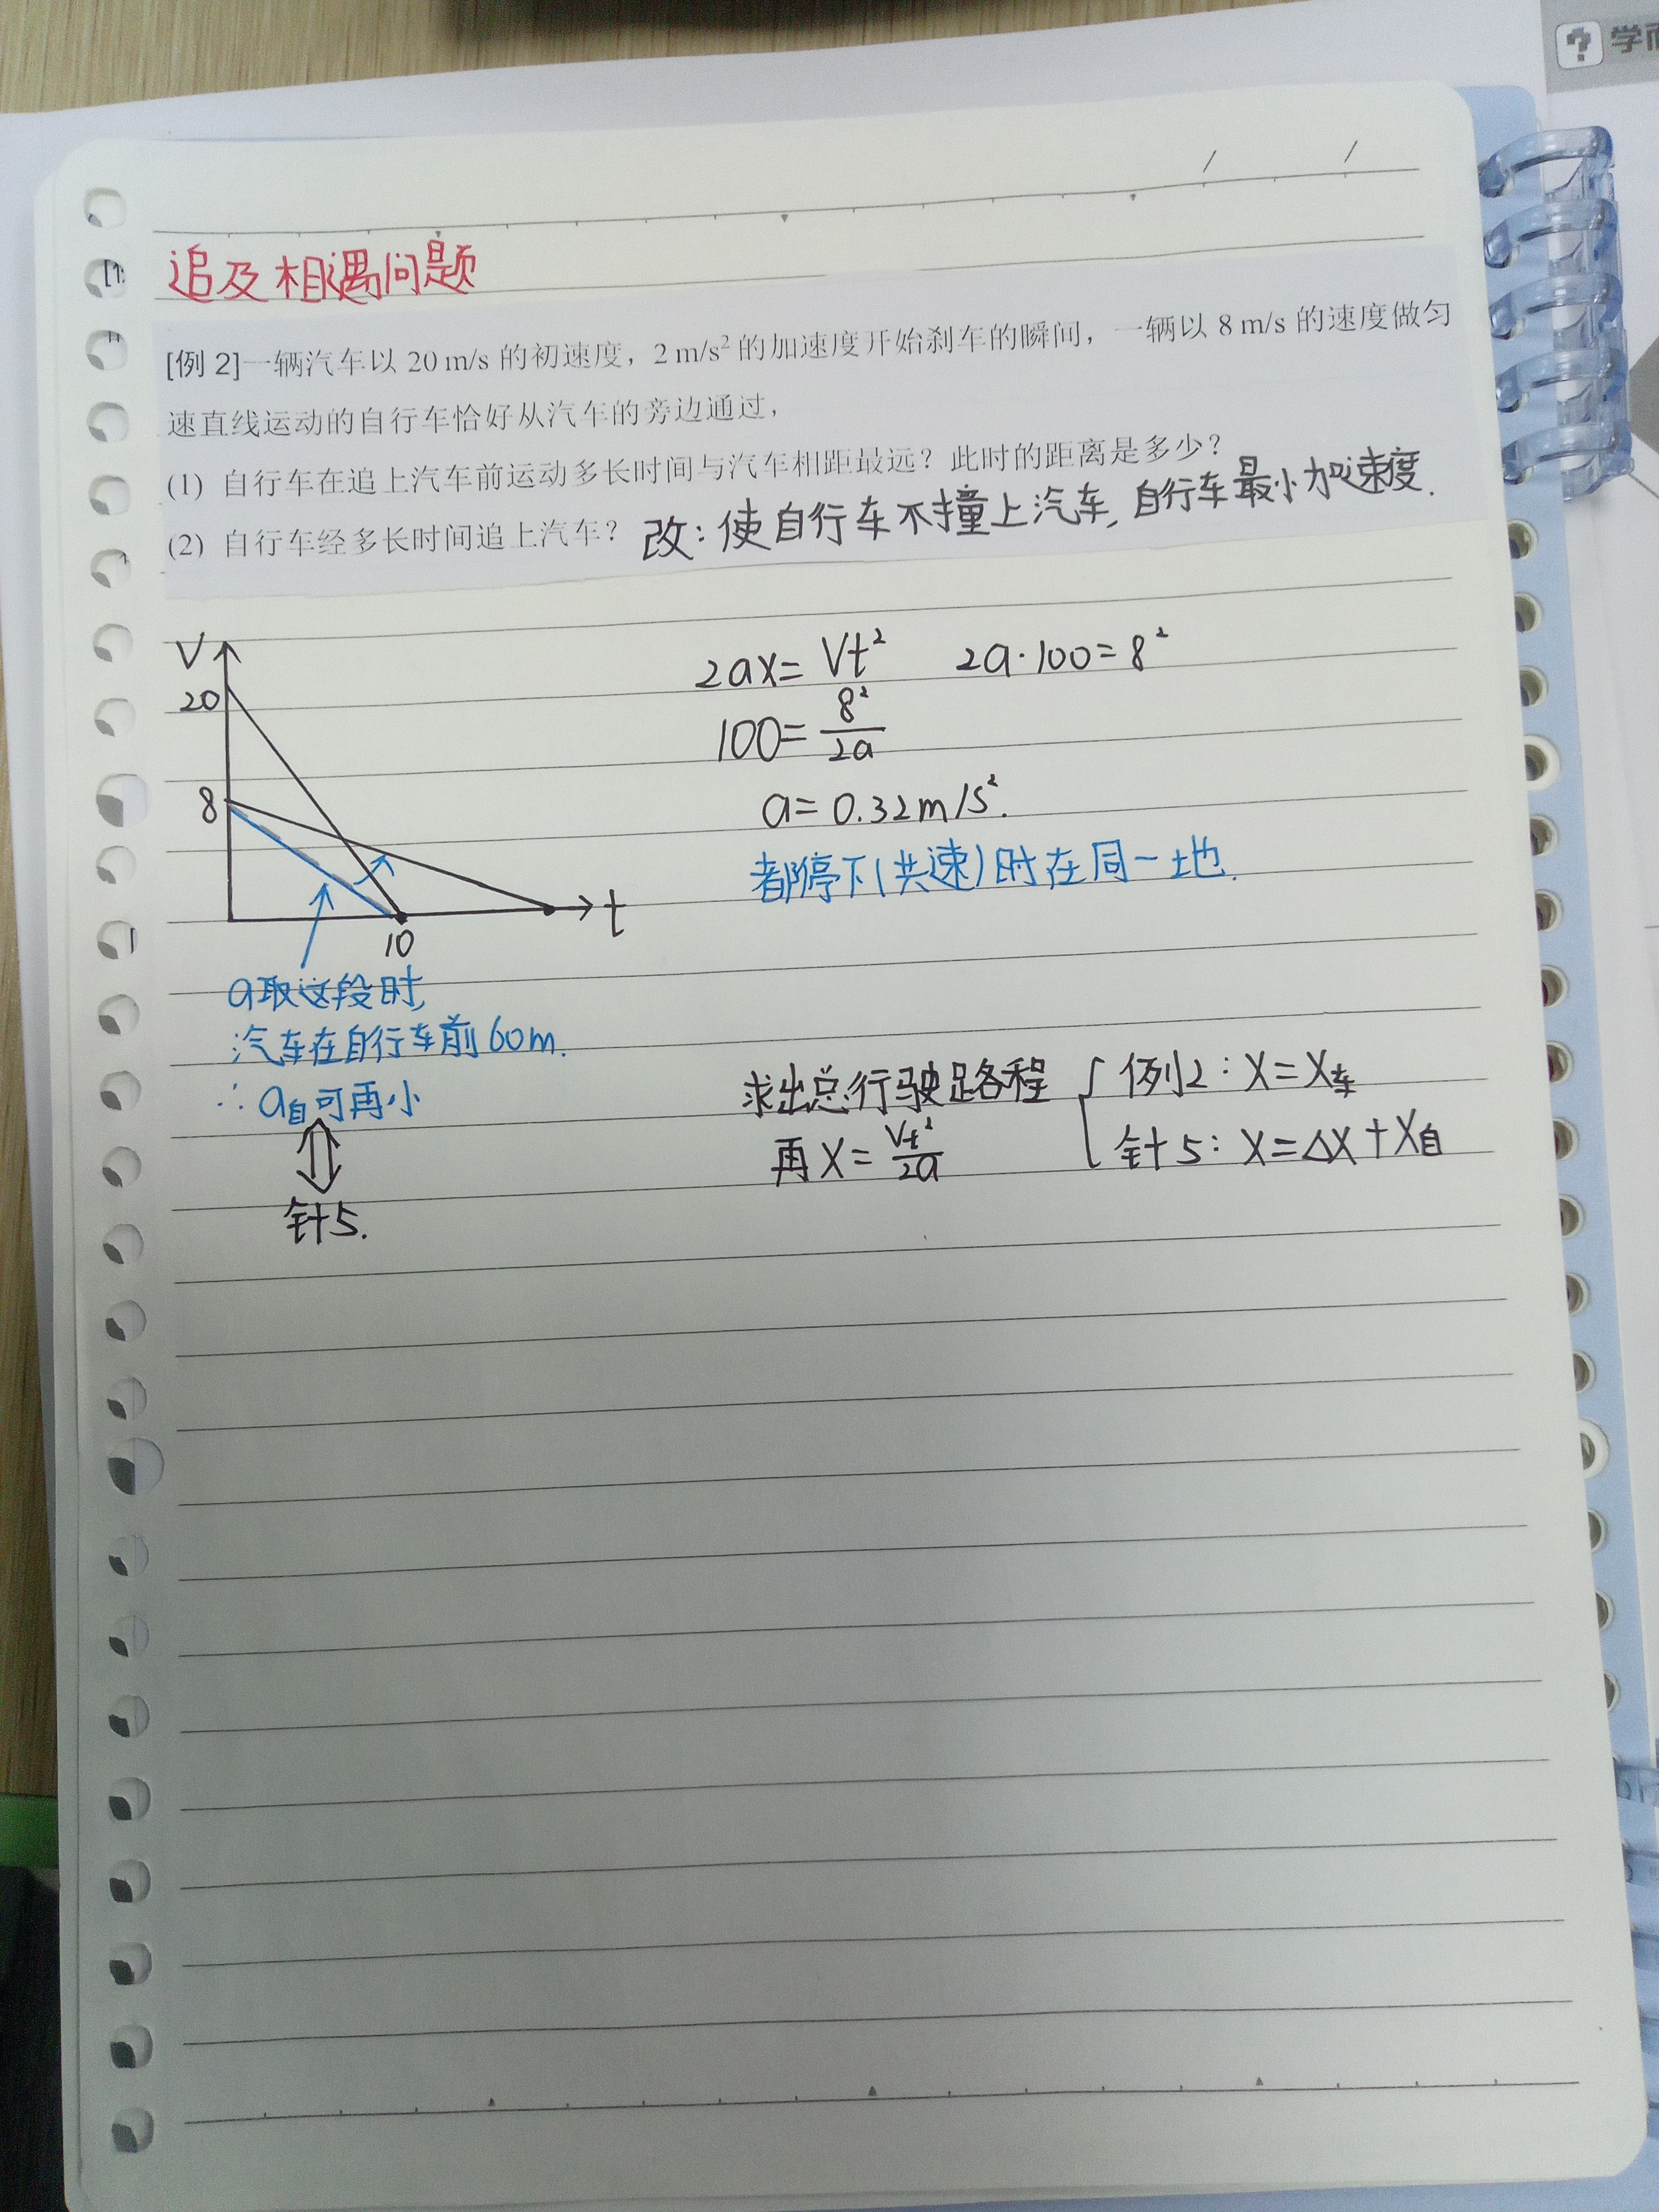 学而
追及相遇问题
[例 2]一辆汽车以 20 m/s 的初速度，2 m/s² 的加速度开始刹车的瞬间，一辆以 8 m/s 的速度做匀
速直线运动的自行车恰好从汽车的旁边通过，
(1) 自行车在追上汽车前运动多长时间与汽车相距最远？此时的距离是多少？
(2) 自行车经多长时间追上汽车？ 改：使自行车不撞上汽车，自行车最小加速度.
V
20
8
10
t
2ax=Vt² 2a·100=8²
100=8²/2a
a=0.32m/s².
都停下(共速)时在同一地.
a取这段时,
汽车在自行车前60m.
∴a自可再小
针5.
求出总行驶路程 { 例2：X=X车
再X=Vt²/2a 针5：X=△X+X自